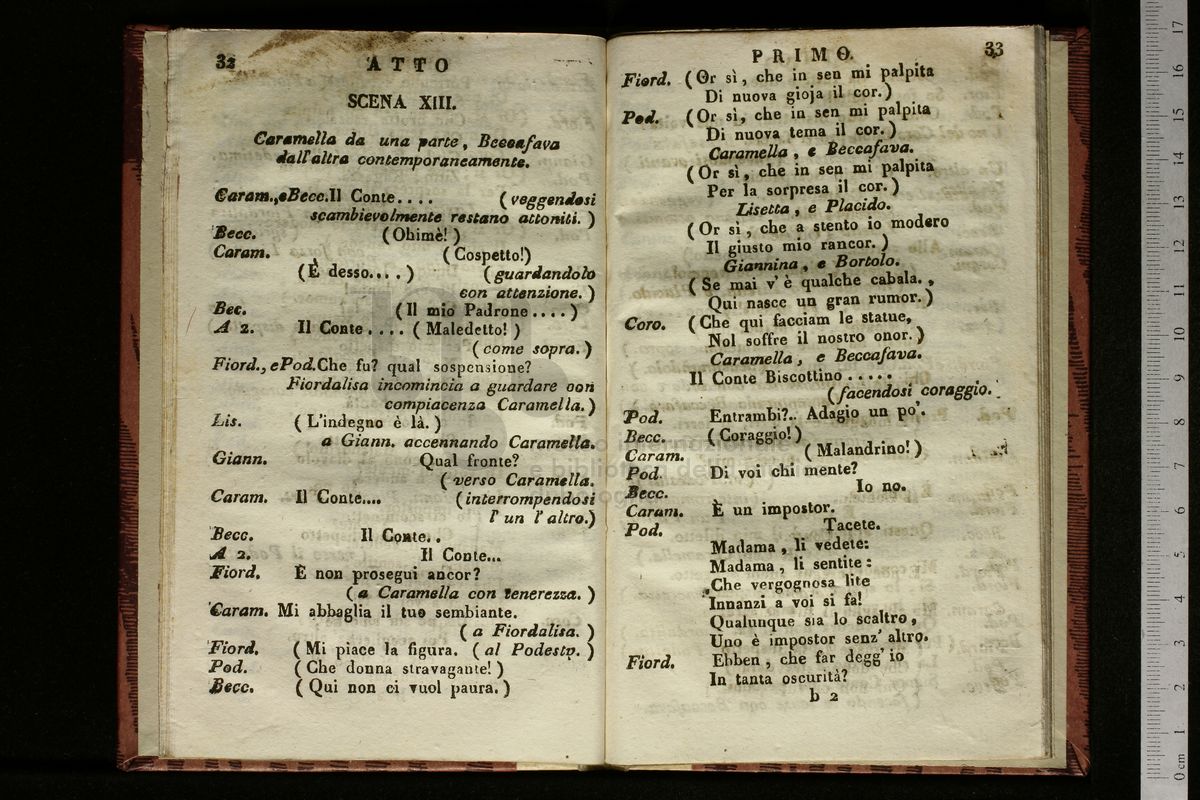 32 ATTO
SCENA XIII.
Caramella da una parte, Beccafava
dall'altra contemporaneamente.
Caram., e Becc. Il Conte.... (veggendosi
scambievolmente restano attoniti.)
Becc. (Ohimè!)
Caram. (Cospetto!)
(È desso....) (guardandolo
con attenzione.)
Bec. (Il mio Padrone....)
A 2. Il Conte.... (Maledetto!)
(come sopra.)
Fiord., e Pod. Che fu? qual sospensione?
Fiordalisa incomincia a guardare con
compiacenza Caramella.)
Lis. (L'indegno è là.)
a Giann. accennando Caramella.
Giann. Qual fronte?
(verso Caramella.
Caram. Il Conte.... (interrompendosi
l' un l' altro.)
Becc. Il Conte..
A 2. Il Conte...
Fiord. È non prosegui ancor?
(a Caramella con tenerezza.)
Caram. Mi abbaglia il tuo sembiante.
(a Fiordalisa.)
Fiord. (Mi piace la figura. (al Podestp.)
Pod. (Che donna stravagante!)
Becc. (Qui non ci vuol paura.)
PRIMO. 33
Fiord. (Or sì, che in sen mi palpita
Di nuova gioja il cor.)
Pod. (Or sì, che in sen mi palpita
Di nuova tema il cor.)
Caramella, e Beccafava.
(Or sì, che in sen mi palpita
Per la sorpresa il cor.)
Lisetta, e Placido.
(Or sì, che a stento io modero
Il giusto mio rancor.)
Giannina, e Bortolo.
(Se mai v' è qualche cabala.,
Qui nasce un gran rumor.)
Coro. (Che qui facciam le statue,
Nol soffre il nostro onor.)
Caramella, e Beccafava.
Il Conte Biscottino.....
(facendosi coraggio.
Pod. Entrambi?.. Adagio un po'.
Becc. (Coraggio!)
Caram. (Malandrino!)
Pod. Di voi chi mente?
Becc. Io no.
Caram. È un impostor.
Pod. Tacete.
Madama, li vedete:
Madama, li sentite:
Che vergognosa lite
Innanzi a voi si fa!
Qualunque sia lo scaltro,
Uno è impostor senz' altro.
Fiord. Ebben, che far degg' io
In tanta oscurità?
b 2
0 cm 1 2 3 4 5 6 7 8 9 10 11 12 13 14 15 16 17